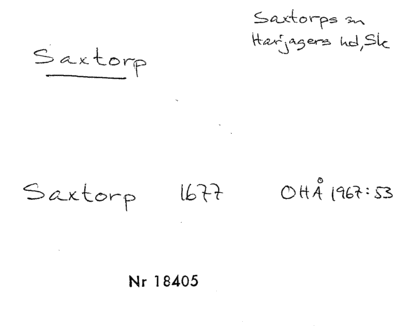 Saxtorps sn
Harjagers hd, Sk
Saxtorp
Saxtorp 1677 OHÅ 1967:53
Nr 18405